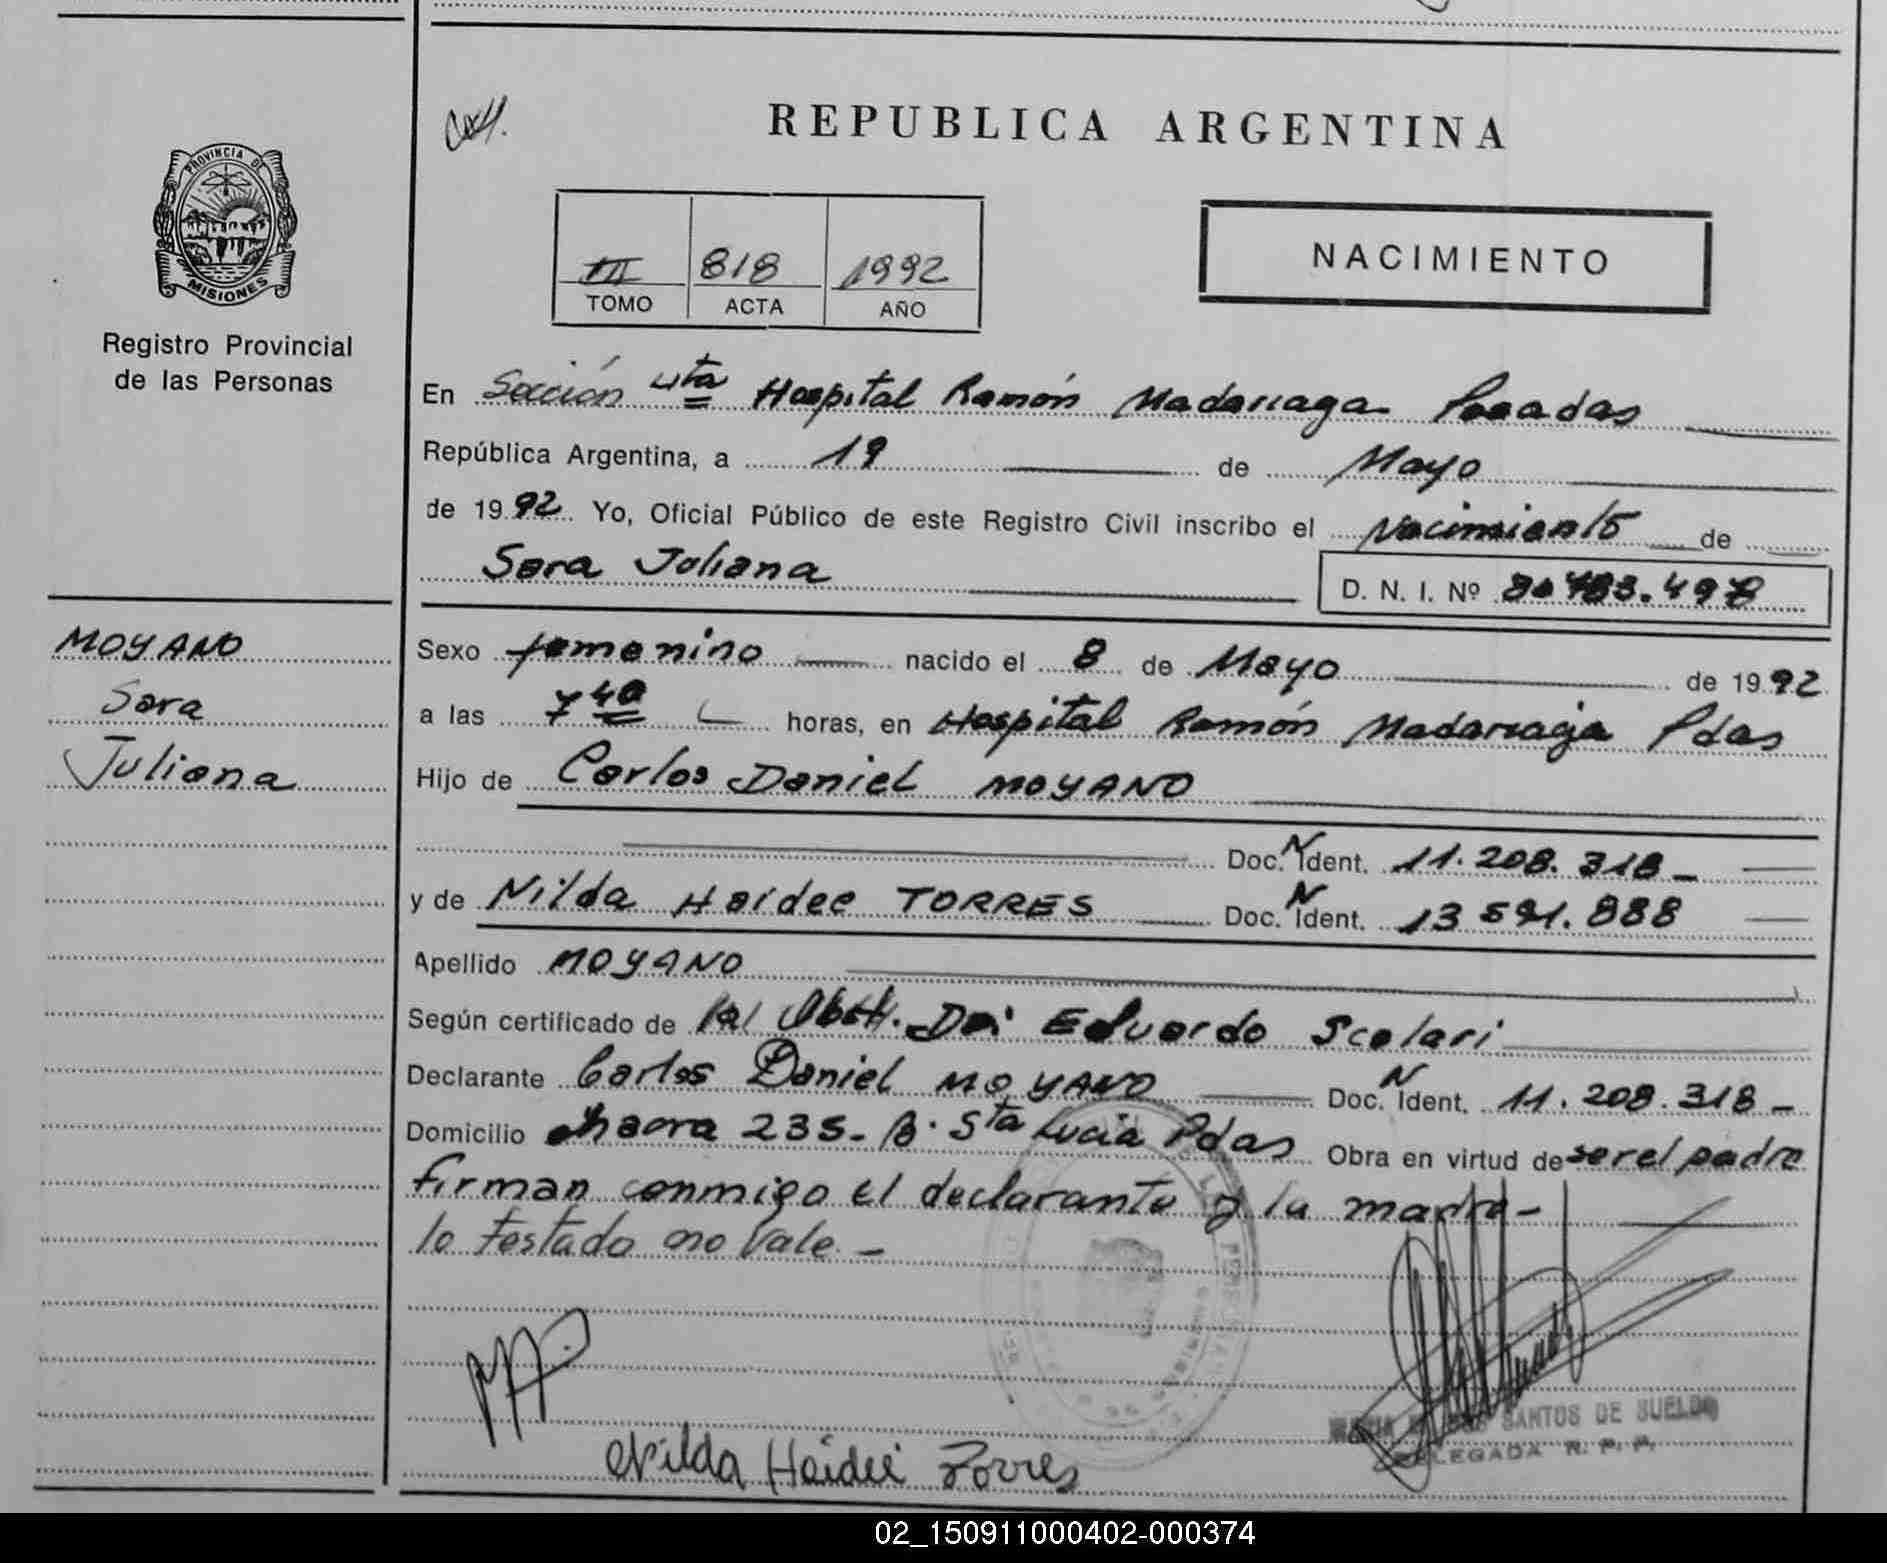 REPUBLICA ARGENTINA
PROVINCIA DE
MISIONES
Registro Provincial
de las Personas
III 818 1992
TOMO ACTA AÑO
NACIMIENTO
En Sección 4ta Hospital Ramón Madariaga Posadas
República Argentina, a 19 de Mayo
de 1992 Yo, Oficial Público de este Registro Civil inscribo el Nacimiento de
Sara Juliana D. N. I. Nº
MOYANO
Sara
Juliana
Sexo femenino nacido el 8 de Mayo de 1992
a las 7 40 horas, en Hospital Ramón Madariaga Pdas
Hijo de Carlos Daniel MOYANO
Doc. N Ident. 11.208.318_
y de Nilda Haidee TORRES Doc. N Ident. 13 591.888
Apellido MOYANO
Según certificado de Obst. Eduardo Scolari
Declarante Carlos Daniel MOYANO Doc. N Ident. 11.208.318_
Domicilio chacra 235_ B. Sta Lucia Pdas Obra en virtud de ser el padre
firman conmigo el declarante y la madre_
lo testado no vale_
Nilda Haideé Torres
SANTOS DE SUELDO
DELEGADA R. P. P.
02_150911000402-000374